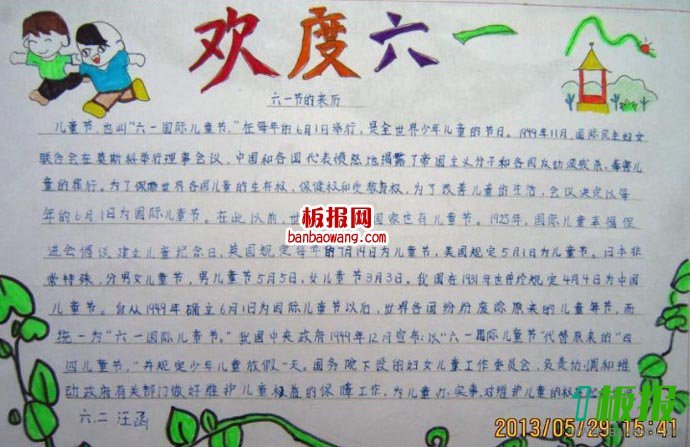 欢度六一
六一节的来历
儿童节,也叫“六一国际儿童节,”在每年的6月1日举行,是全世界少年儿童的节日。1949年11月,国际民主妇女
联合会在莫斯科举行理事会议,中国和各国代表愤怒地揭露了帝国主义分子和各国反动派残杀、毒害儿
童的罪行。为了保障世界各国儿童的生存权,保健权和受教育权,为了改善儿童的生活,会议决定以每
年的6月1日为国际儿童节。在此以前,世 国家也有儿童节。1925年,国际儿童幸福促
进会倡议建立儿童纪念日,英国规定每年的7月14日为儿童节,美国规定5月1日为儿童节。日本非
常特殊,分男女儿童节,男儿童节5月5日,女儿童节3月3日。我国在1931年也曾经规定4月4日为中国
儿童节。自从1949年确立6月1日为国际儿童节以后,世界各国纷纷废除原来的儿童节,而
统一为“六一国际儿童节。”我国中央政府1949年12月宣布:以“六一国际儿童节”代替原来的“四
四儿童节,”并规定少年儿童放假一天。国务院下设的妇女儿童工作委员会,负责协调和推
动政府有关部门做好维护儿童权益的保障工作,为儿童办实事,对维护儿童的权
六.二 汪函
板报网
banbaowang.com
板报
2013/05/29 15:41